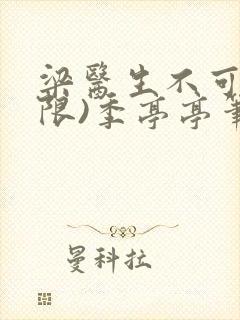 梁醫生不可
限)季亭亭筆
曼科拉